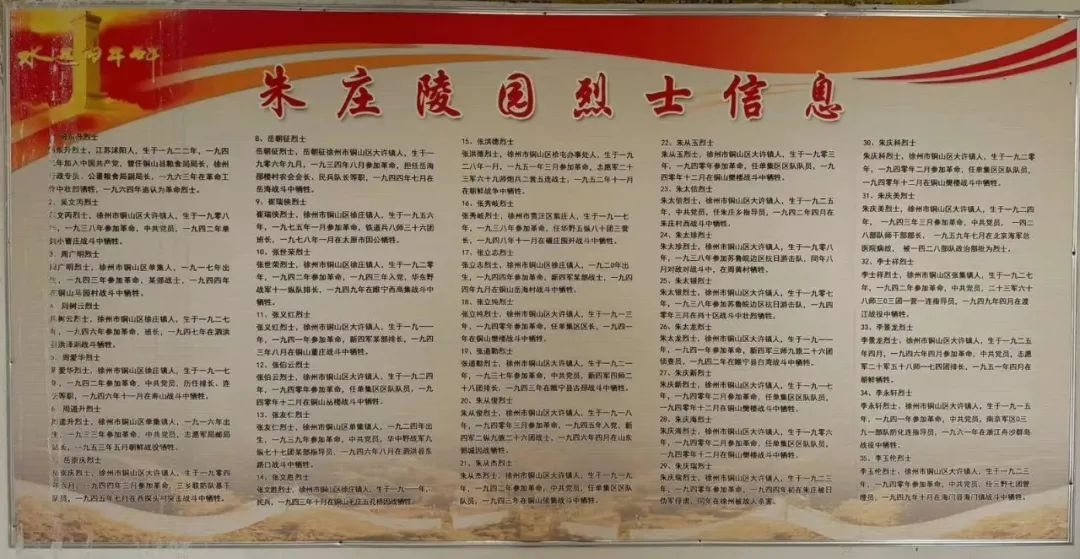 永远的丰碑
朱庄陵园烈士信息
东升烈士，江苏沭阳人，生于一九二二年，一九四
年加入中国共产党，曾任铜山县粮食局局长，徐州
行政专员，公署粮食局副局长，一九六三年在革命工
作中壮烈牺牲，一九六四年追认为革命烈士。
2、吴文丙烈士
文丙烈士，徐州市铜山区大许镇人，生于一九零八
年，一九四三年参加革命，中共党员，一九四二年单
小曹庄战斗中牺牲。
3、周广明烈士
广明烈士，徐州市铜山区单集人，一九一七年出
生，一九四三年参加革命，某部战士，一九四四年
在铜山马园村战斗中牺牲。
4、周树云烈士
树云烈士，徐州市铜山区徐庄镇人，生于一九二七
年，一九四六年参加革命，班长，一九四七年在泗洪
县洪泽湖战斗中牺牲。
5、周爱华烈士
爱华烈士，徐州市铜山区徐庄镇人，生于一九一七
年，一九四二年参加革命，中共党员，历任排长、连
长等职，一九四六年十一月在寿山战斗中牺牲。
6、周道升烈士
道升烈士，徐州市铜山区单集镇人，一九一六年出
生，一九三三年参加革命，中共党员，志愿军局邮局
局长，一九五三年五月朝鲜战役牺牲。
7、岳崇庆烈士
岳崇庆烈士，徐州市铜山区大许镇人，生于一九零四
年，一九四四年三月参加革命，三乡联防队基干
队员，一九四五年七月在西探头村突击战斗中牺牲。
8、岳朝征烈士
岳朝征烈士，岳朝征徐州市铜山区大许镇人，生于一
九零六年九月，一九三四年八月参加革命，担任岳海
邵楼村农会会长、民兵队长等职，一九四四年七月在
岳海战斗中牺牲。
9、崔瑞侠烈士
崔瑞侠烈士，徐州市铜山区徐庄镇人，生于一九五六
年，一九七五年一月参加革命，铁道兵八师三十六团
班长，一九七八年一月在太原市因公牺牲。
10、张世荣烈士
张世荣烈士，徐州市铜山区徐庄镇人，生于一九二零
年，一九四二年参加革命，一九四三年入党，华东野
战军十一纵队排长，一九四九年在睢宁西高集战斗中
牺牲。
11、张义红烈士
张义红烈士，徐州市铜山区大许镇人，生于一九一一
年，一九四一年参加革命，新四军某部排长，一九四
三年八月在铜山董庄战斗中牺牲。
12、张伯云烈士
张伯云烈士，徐州市铜山区大许镇人，生于一九一三
年，一九四零年参加革命，任单集区区队队员，一九
四零年十二月在铜山丛楼战斗中牺牲。
13、张友仁烈士
张友仁烈士，徐州市铜山区单集镇人，一九二四年出
生，一九三九年参加革命，中共党员，华中野战军九
纵七十七团某部指导员，一九四六年八月在泗洪县东
路口战斗中牺牲。
14、张文胜烈士
张文胜烈士，徐州市铜山区徐庄镇人，生于一九一一年，
民兵，一九四三年十月在铜山毛庄五孔桥因战牺牲。
15、张洪德烈士
张洪德烈士，徐州市铜山区拾屯办事处人，生于一九
二八年一月，一九五一年三月参加革命，志愿军二十
三军六十九师炮兵二营五连战士，一九五二年十一月
在朝鲜战争中牺牲。
16、张秀岐烈士
张秀岐烈士，徐州市贾汪区紫庄人，生于一九一七
年，一九三八年参加革命，任华野五纵八十团三营
长，一九四八年十一月在碾庄围歼战斗中牺牲。
17、张立志烈士
张立志烈士，徐州市铜山区徐庄镇人，一九二0年出
生，一九四四年参加革命，新四军某部战士，一九四四
四年九月在铜山岳海村战斗中牺牲。
18、张立纯烈士
张立纯烈士，徐州市铜山区大许镇人，生于一九一三
年，一九四零年参加革命，任单集区区长，一九四一
年在铜山樊楼战斗中牺牲。
19、张道勤烈士
张道勤烈士，徐州市铜山区大许镇人，生于一九二一
年，一九三七年参加革命，中共党员，新四军四师二
十八团排长，一九四三年在睢宁县古邳战斗中牺牲。
20、朱从俊烈士
朱从俊烈士，徐州市铜山区大许镇人，生于一九一八
年，一九四零年三月参加革命，一九四五年入党，新
四军二纵九旅二十六团战士，一九四六年四月在山东
郭城因战牺牲。
21、朱从杰烈士
朱从杰烈士，徐州市铜山区大许镇人，生于一九一一
年，一九四二年参加革命，中共党员，任单集区区队
队员，一九四三年在铜山徐集战斗中牺牲。
22、朱从玉烈士
朱从玉烈士，徐州市铜山区大许镇人，生于一九零三
年，一九四零年参加革命，任单集区区队队员，一九
四零年十二月在铜山樊楼战斗中牺牲。
23、朱太信烈士
朱太信烈士，徐州市铜山区大许镇人，生于一九二四
年，中共党员，任朱庄乡指导员，一九四二年四月在
朱庄村西战斗中牺牲。
24、朱太珍烈士
朱太珍烈士，徐州市铜山区大许镇人，生于一九一八
年，一九三八年参加苏鲁皖边区抗日游击队，同年八
月对敌对战斗中，在周黄村牺牲。
25、朱太银烈士
朱太银烈士，徐州市铜山区大许镇人，生于一九零七
年，一九三八年参加苏鲁皖边区抗日游击队，一九四
零年三月在肖十区战斗中壮烈牺牲。
26、朱太龙烈士
朱太龙烈士，徐州市铜山区大许镇人，生于一九零九
年，一九四一年参加革命，新四军三师九旅二十六团
侦查员，一九四二年在睢宁县白湾战斗中牺牲。
27、朱庆新烈士
朱庆新烈士，徐州市铜山区大许镇人，生于一九一七
年，一九四零年参加革命，任单集区区队队员，一九
四零年十二月在铜山樊楼战斗中牺牲。
28、朱庆海烈士
朱庆海烈士，徐州市铜山区大许镇人，生于一九一六
年，一九四零年二月参加革命，任单集区区队队员，
一九四零年十二月在铜山樊楼战斗中牺牲。
29、朱庆瑞烈士
朱庆瑞烈士，徐州市铜山区大许镇人，生于一九一一
年，一九四零年参加革命，一九四四年初在朱庄被日
伪军俘虏，同年在徐州被敌人杀害。
30、朱庆科烈士
朱庆科烈士，徐州市铜山区大许镇人，生于一九二零
年，一九四零年二月参加革命，任单集区区队队员，
一九四零年十二月在铜山樊楼战斗中牺牲。
31、朱庆美烈士
朱庆美烈士，徐州市铜山区大许镇人，生于一九二四年，
一九四三年三月参加革命，中共党员，一四二
八部队师干部部长，一九五九年七月在北京海军总
医院病故，被一四二八部队政治部批为烈士。
32、李士祥烈士
李士祥烈士，徐州市铜山区张集镇人，生于一九二七
年，一九四四年参加革命，中共党员，二十三军六十
八师三0三团一营一连指导员，一九四九年四月在渡
江战役中牺牲。
33、李景龙烈士
李景龙烈士，徐州市铜山区大许镇人，生于一九二五
年四月，一九四六年四月参加革命，中共党员，志愿
军二十军五十八师一七四团排长，一九五一年四月在
朝鲜牺牲。
34、李永轩烈士
李永轩烈士，徐州市铜山区大许镇人，生于一九一五
年，一九四一年参加革命，中共党员，南京军区0三
九一部队防化连指导员，一九六一年在浙江舟沙群岛
战役中牺牲。
35、李玉伦烈士
李玉伦烈士，徐州市铜山区大许镇人，生于一九二三
年，一九四四年参加革命，中共党员，任三野七团管
理员，一九四九年十月在海门县海门镇战斗中牺牲。